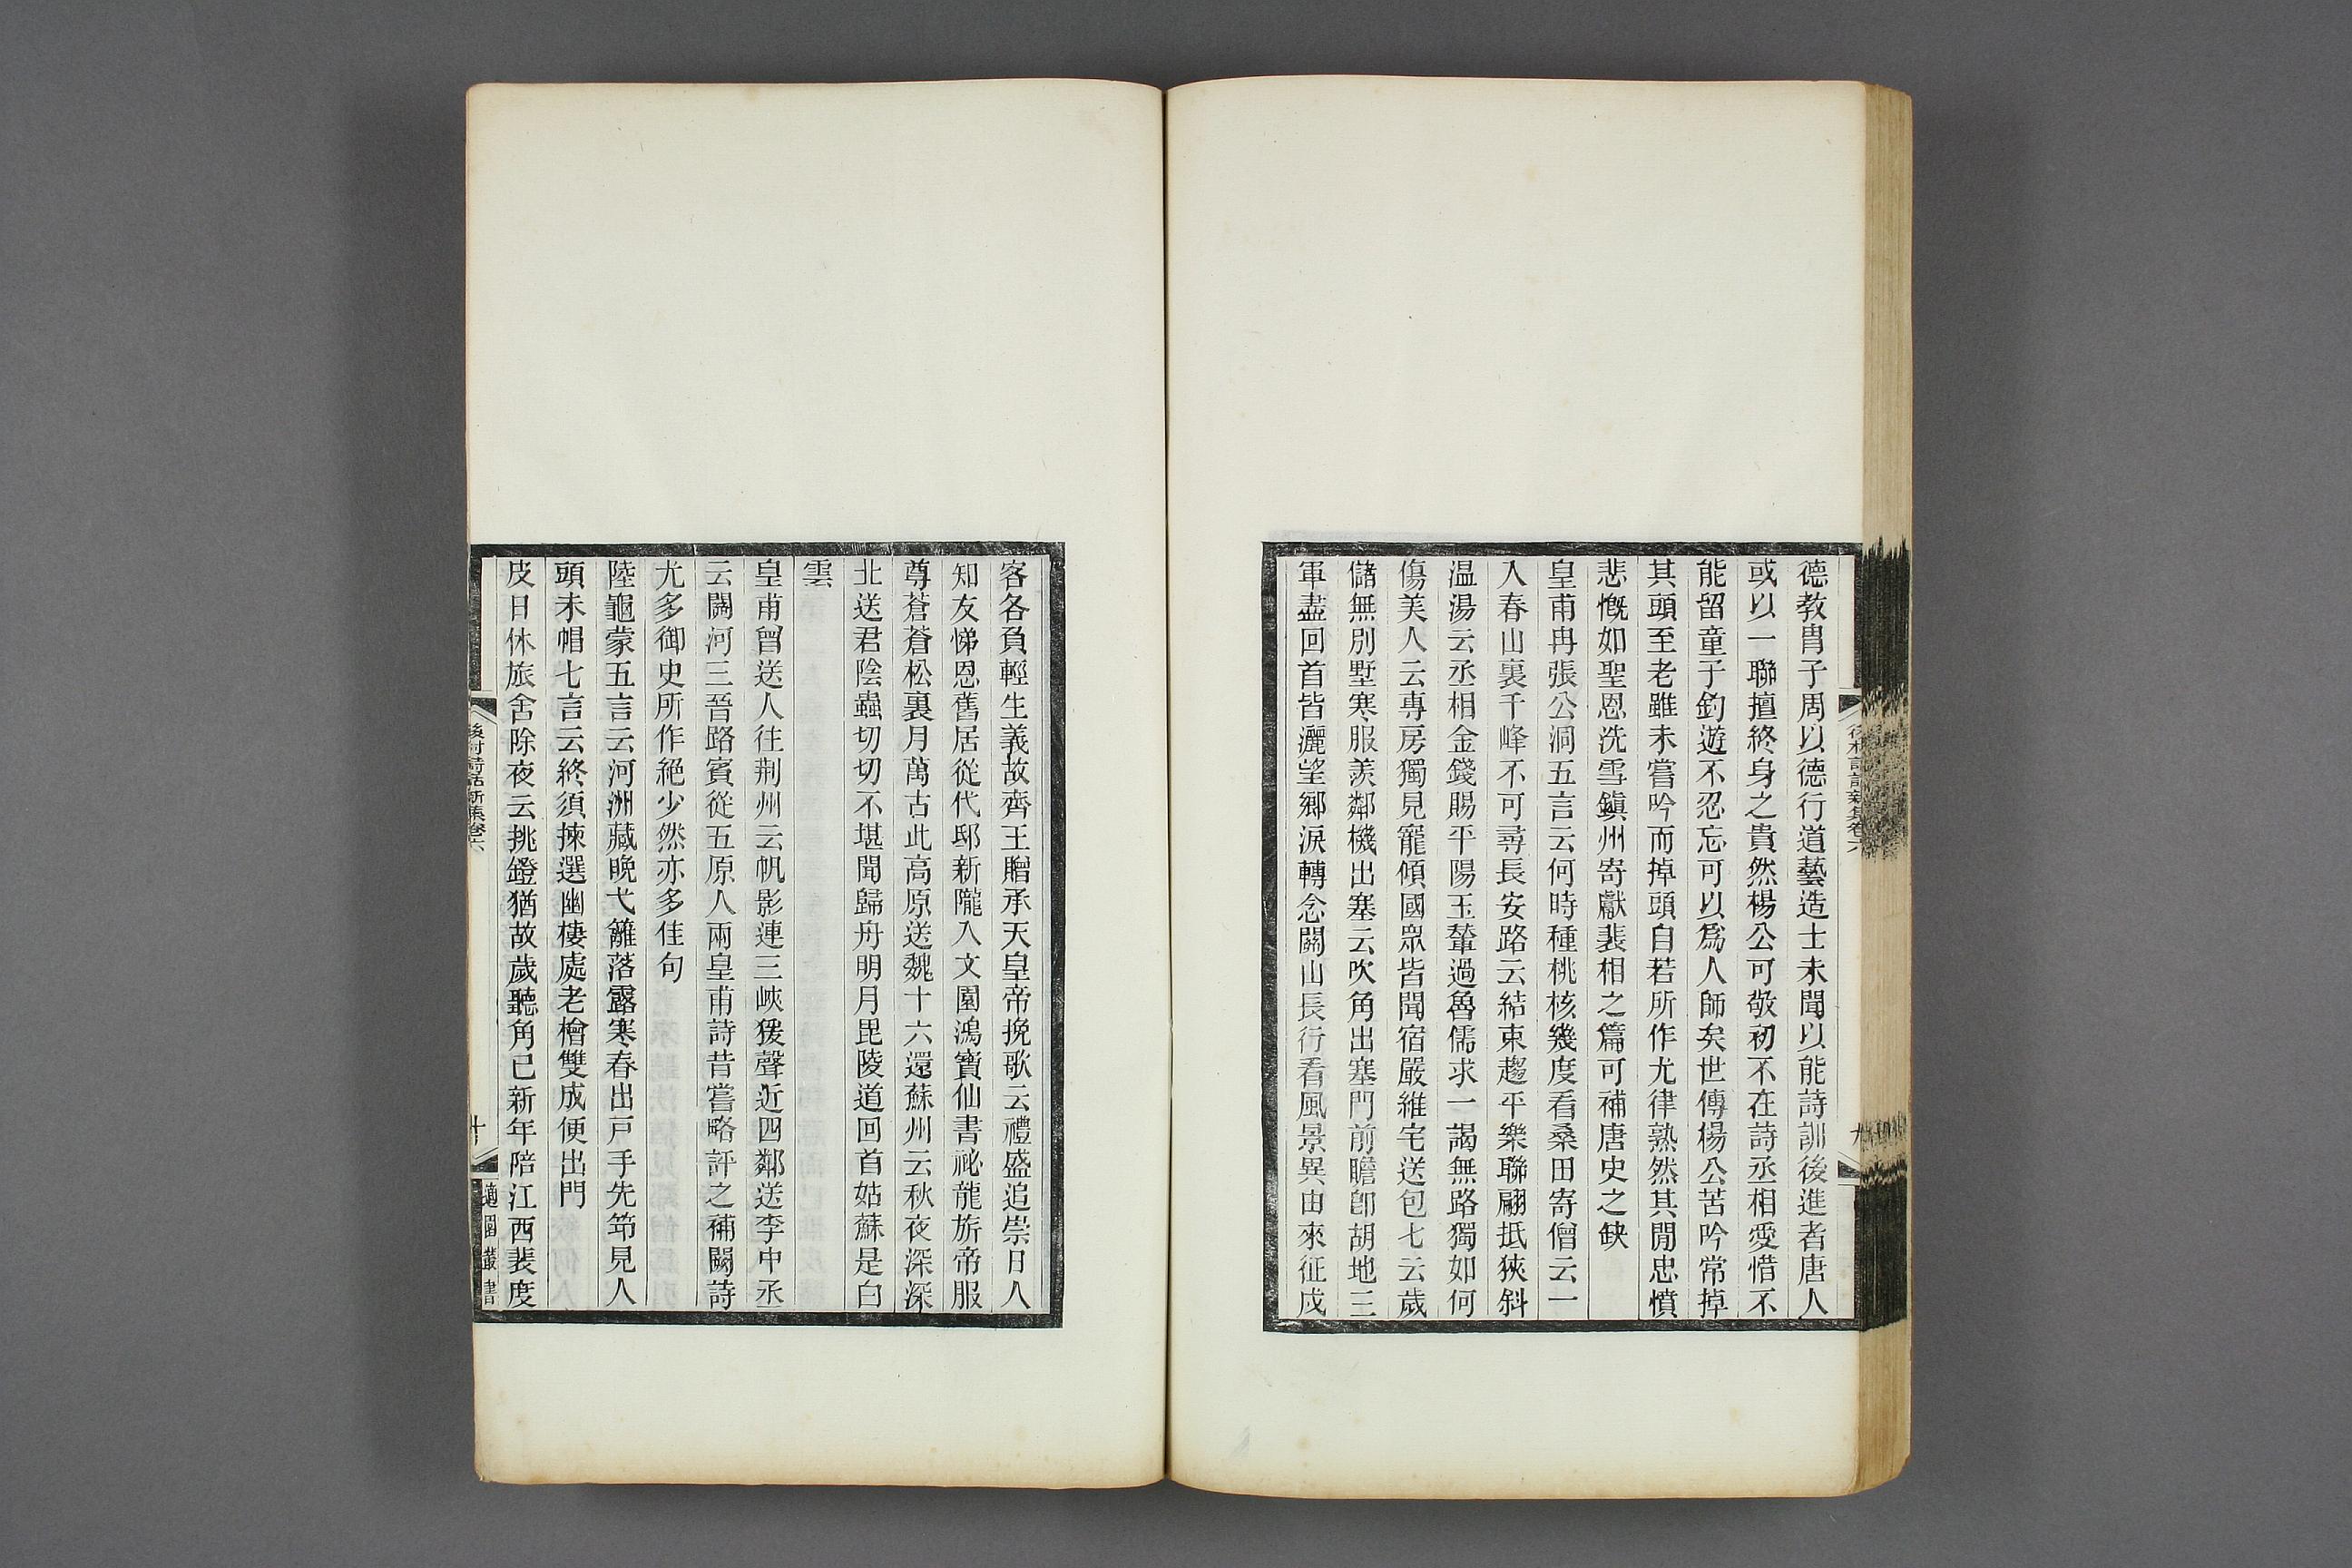 德教胄子周以德行道藝造士未聞以能詩訓後進者唐人
或以一聯擅終身之貴然楊公可敬初不在詩丞相愛惜不
能留童子釣遊不忍忘可以爲人師矣世傳楊公苦吟常掉
其頭至老雖未嘗吟而掉頭自若所作尤律熟然其閒忠憤
悲慨如聖恩洗雪鎭州寄獻裴相之篇可補唐史之缺
皇甫冉張公洞五言云何時種桃核幾度看桑田寄僧云一
入春山裏千峰不可尋長安路云結束趨平樂聯翩抵狹斜
温湯云丞相金錢賜平陽玉輦過魯儒求一謁無路獨如何
傷美人云專房獨見寵傾國眾皆聞宿嚴維宅送包七云歲
儲無別墅寒服羨鄰機出塞云吹角出塞門前瞻卽胡地三
軍盡回首皆灑望鄉淚轉念關山長行看風景異由來征戍
後村詩話新集卷六
九
客各負輕生義故齊王贈承天皇帝挽歌云禮盛追崇日人
知友悌恩舊居從代邸新隴入文園鴻寶仙書祕龍旂帝服
尊蒼蒼松裏月萬古此高原送魏十六還蘇州云秋夜深深
北送君陰蟲切切不堪聞歸舟明月毘陵道回首姑蘇是白
雲
皇甫曾送人往荆州云帆影連三峽猨聲近四鄰送李中丞
云關河三晉路賓從五原人兩皇甫詩昔嘗略評之補闕詩
尤多御史所作絕少然亦多佳句
陸龜蒙五言云河洲藏晚弋籬落露寒春出戸手先笻見人
頭未帽七言云終須揀選幽棲處老檜雙成便出門
皮日休旅舍除夜云挑鐙猶故歲聽角已新年陪江西裴度
後村詩話新集卷六
十
適園叢書